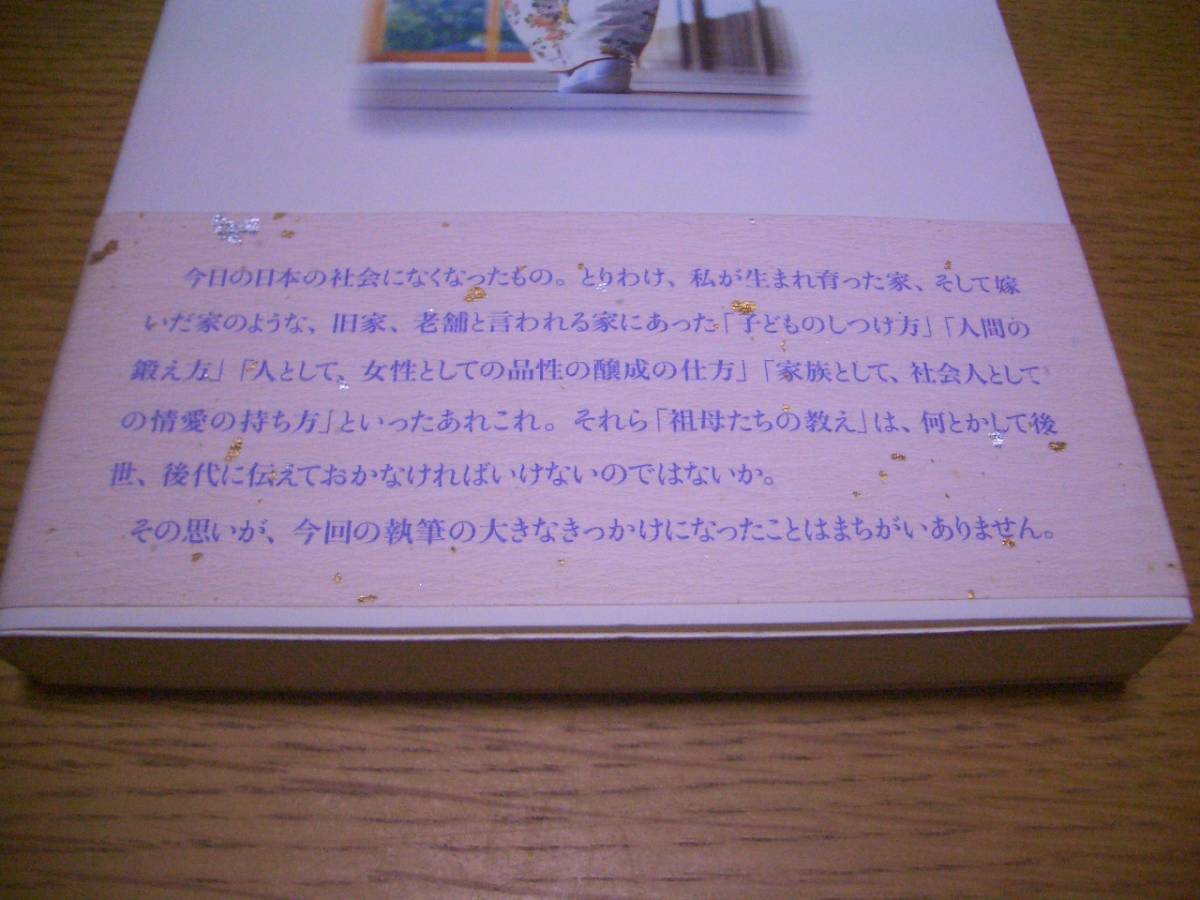 今日の日本の社会になくなったもの。とりわけ、私が生まれ育った家、そして嫁
いだ家のような、旧家、老舗と言われる家にあった「子どものしつけ方」「人間の
鍛え方」「人として、女性としての品性の醸成の仕方」「家族として、社会人として
の情愛の持ち方」といったあれこれ。それら「祖母たちの教え」は、何とかして後
世、後代に伝えておかなければいけないのではないか。
その思いが、今回の執筆の大きなきっかけになったことはまちがいありません。